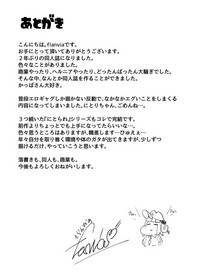 あとがき
こんにちは。flanviaです。
お手にとって頂いてありがとうございます。
2年ぶりの同人誌になりました。
色々なことがありました。
商業やったり、ヘルニアやったり、どったんばったん大騒ぎでした。
そんな中、なんとか同人誌を作ることができました。
かっぱさん大好き。
普段エロギャグしか描かない反動で、なかなかエグいことをまくる
内容になってしまいました。にとりちゃん、ごめんね…。
3つ続いた『にとられ』シリーズもコレで完結です。
前作よりちょっとでも上手になってたらいいな…。
色々思うところはありますが、職直します…ひゅえぇ…
年々自分を取り巻く環境や体のガタが出てきていますが、少しずつ
描けるだけ、やっていこうと思います。
落書きも、同人も、商業も。
今後もよろしくおねがいします。